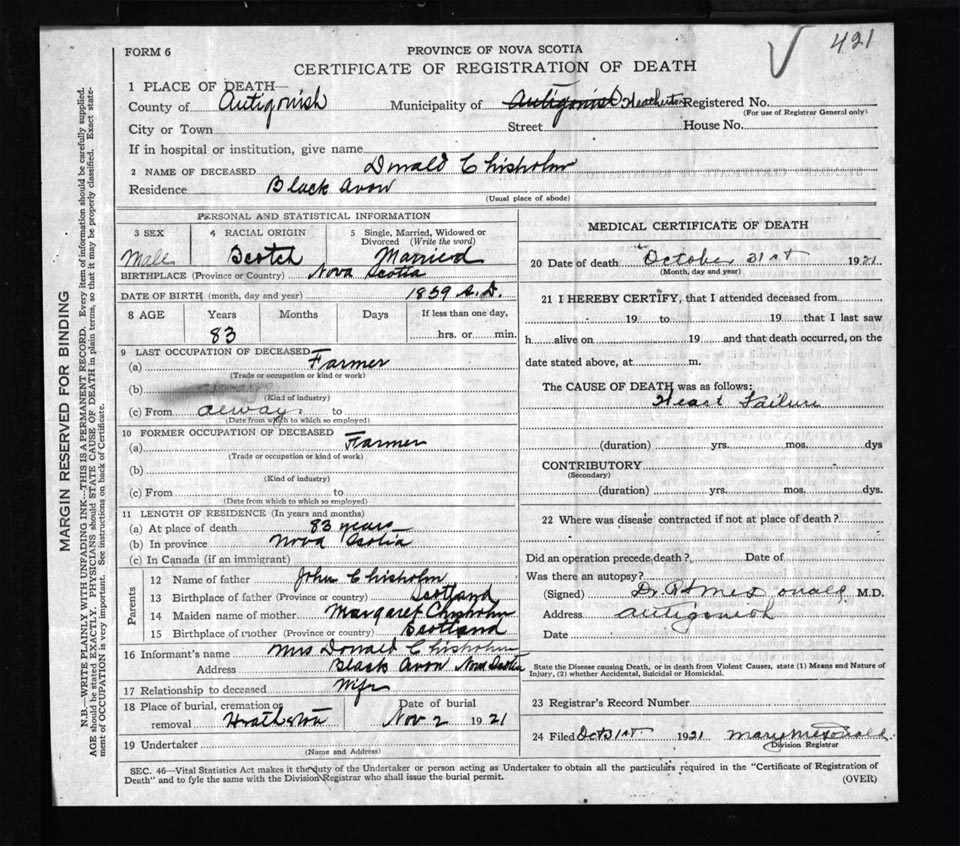 421
FORM 6
PROVINCE OF NOVA SCOTIA
CERTIFICATE OF REGISTRATION OF DEATH
1 PLACE OF DEATH—
County of Antigonish Municipality of Antigonish Heatherton Registered No.
(For use of Registrar General only)
City or Town Street House No.
If in hospital or institution, give name
2 NAME OF DECEASED Donald Chisholm
Residence Black Avon
(Usual place of abode)
MARGIN RESERVED FOR BINDING
N.B.—WRITE PLAINLY WITH UNFADING INK—THIS IS A PERMANENT RECORD. Every item of information should be carefully supplied.
AGE should be stated EXACTLY. PHYSICIANS should STATE CAUSE OF DEATH in plain terms, so that it may be properly classified. Exact state-
ment of OCCUPATION is very important. See instructions on back of Certificate.
PERSONAL AND STATISTICAL INFORMATION
3 SEX 4 RACIAL ORIGIN 5 Single, Married, Widowed or
Divorced (Write the word)
Male Scotch Married
BIRTHPLACE (Province or Country) Nova Scotia
DATE OF BIRTH (month, day and year) 1839 A.D.
8 AGE Years Months Days If less than one day,
83 hrs. or min.
9 LAST OCCUPATION OF DECEASED
(a) Farmer
(Trade or occupation or kind or work)
(b)
(Kind of industry)
(c) From alway. to
(Date from which to which so employed)
10 FORMER OCCUPATION OF DECEASED
(a) Farmer
(Trade or occupation or kind of work)
(b)
(Kind of industry)
(c) From to
(Date from which to which so employed)
11 LENGTH OF RESIDENCE (In years and months)
(a) At place of death 83 years
(b) In province Nova Scotia
(c) In Canada (if an immigrant)
Parents
12 Name of father John Chisholm
13 Birthplace of father (Province or country) Scotland
14 Maiden name of mother Margaret Chisholm
15 Birthplace of mother (Province or country) Scotland
16 Informant's name Mrs Donald Chisholm
Address Black Avon Nova Scotia
17 Relationship to deceased Wife
18 Place of burial, cremation or Date of burial
removal Heatherton Nov 2 1921
19 Undertaker
(Name and Address)
MEDICAL CERTIFICATE OF DEATH
20 Date of death October 31st 1921
(Month, day and year)
21 I HEREBY CERTIFY, that I attended deceased from
19 to 19 that I last saw
h alive on 19 and that death occurred, on the
date stated above, at m.
The CAUSE OF DEATH was as follows:
Heart Failure
(duration) yrs. mos. dys
CONTRIBUTORY
(Secondary)
(duration) yrs. mos. dys.
22 Where was disease contracted if not at place of death?
Did an operation precede death? Date of
Was there an autopsy?
(Signed) Dr. M.D.
Address Antigonish
Date
State the Disease causing Death, or in death from Violent Causes, state (1) Means and Nature of
Injury, (2) whether Accidental, Suicidal or Homicidal.
23 Registrar's Record Number
24 Filed Oct 31st 1921 Mary McDonald
Division Registrar
SEC. 46—Vital Statistics Act makes it the duty of the Undertaker or person acting as Undertaker to obtain all the particulars required in the "Certificate of Registration of
Death" and to fyle the same with the Division Registrar who shall issue the burial permit. (OVER)